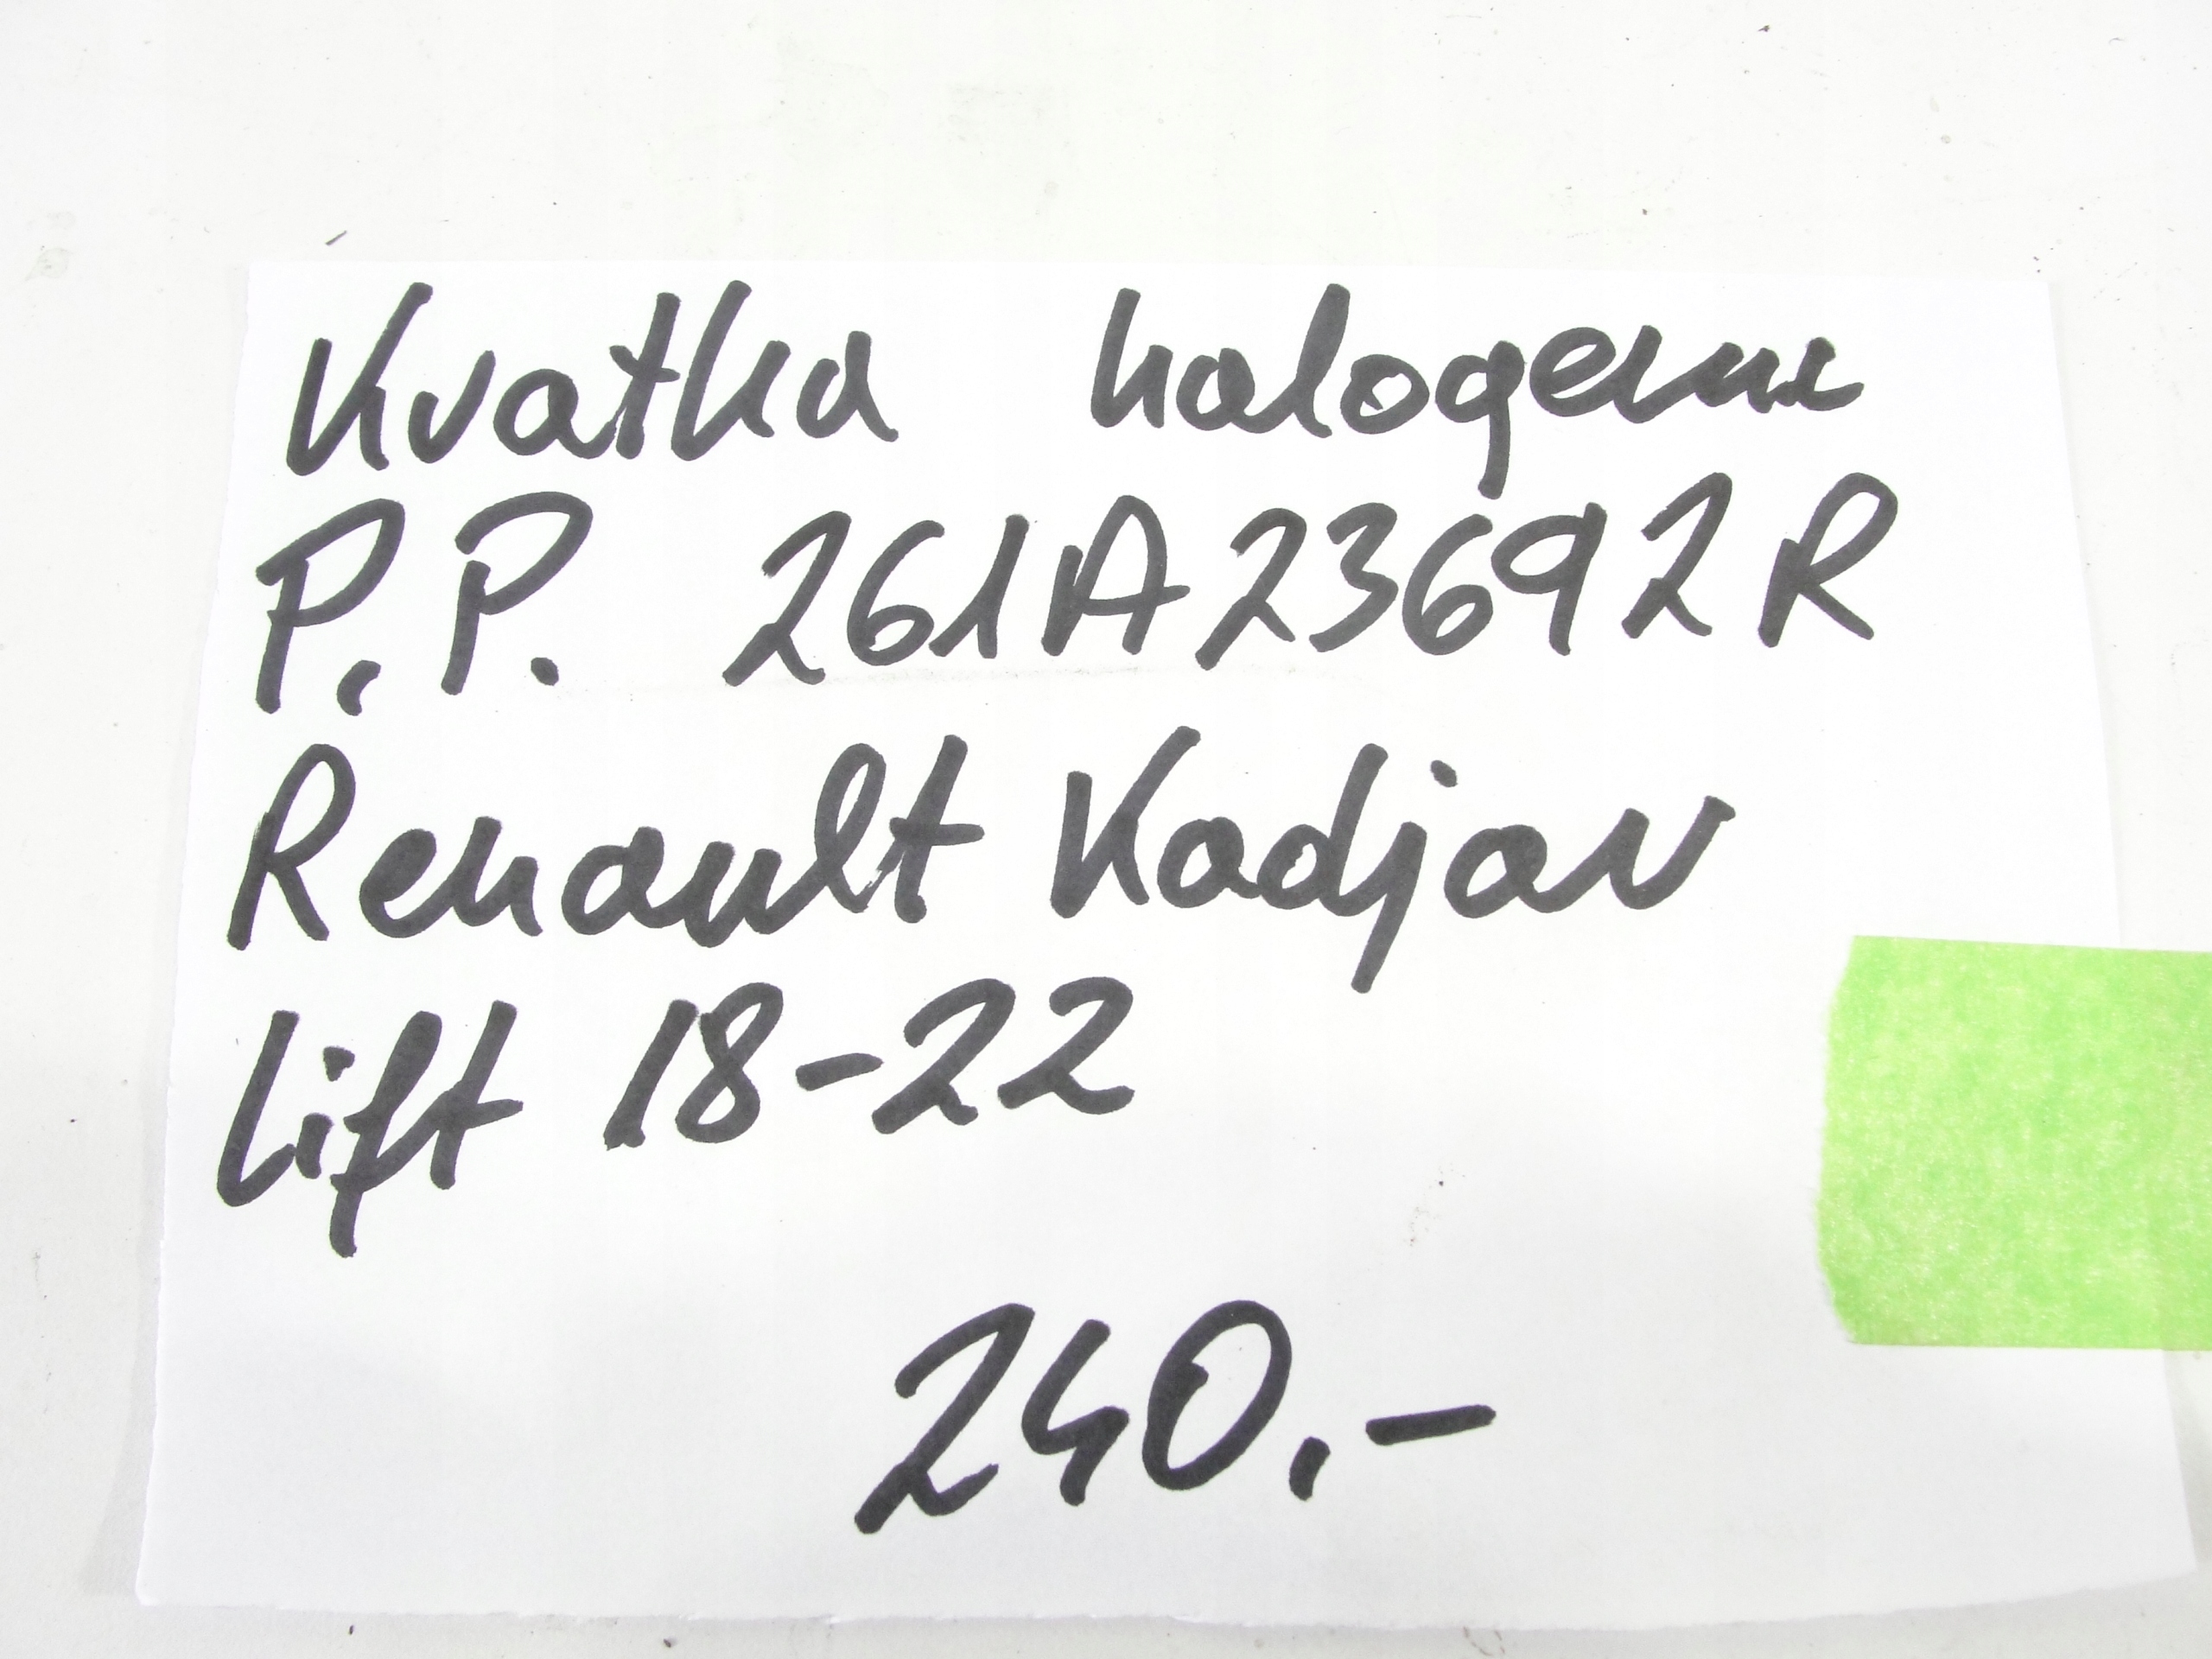 Kratka halogenu
P.P. 261A23692R
Renault Kadjar
Lift 18-22
240.-